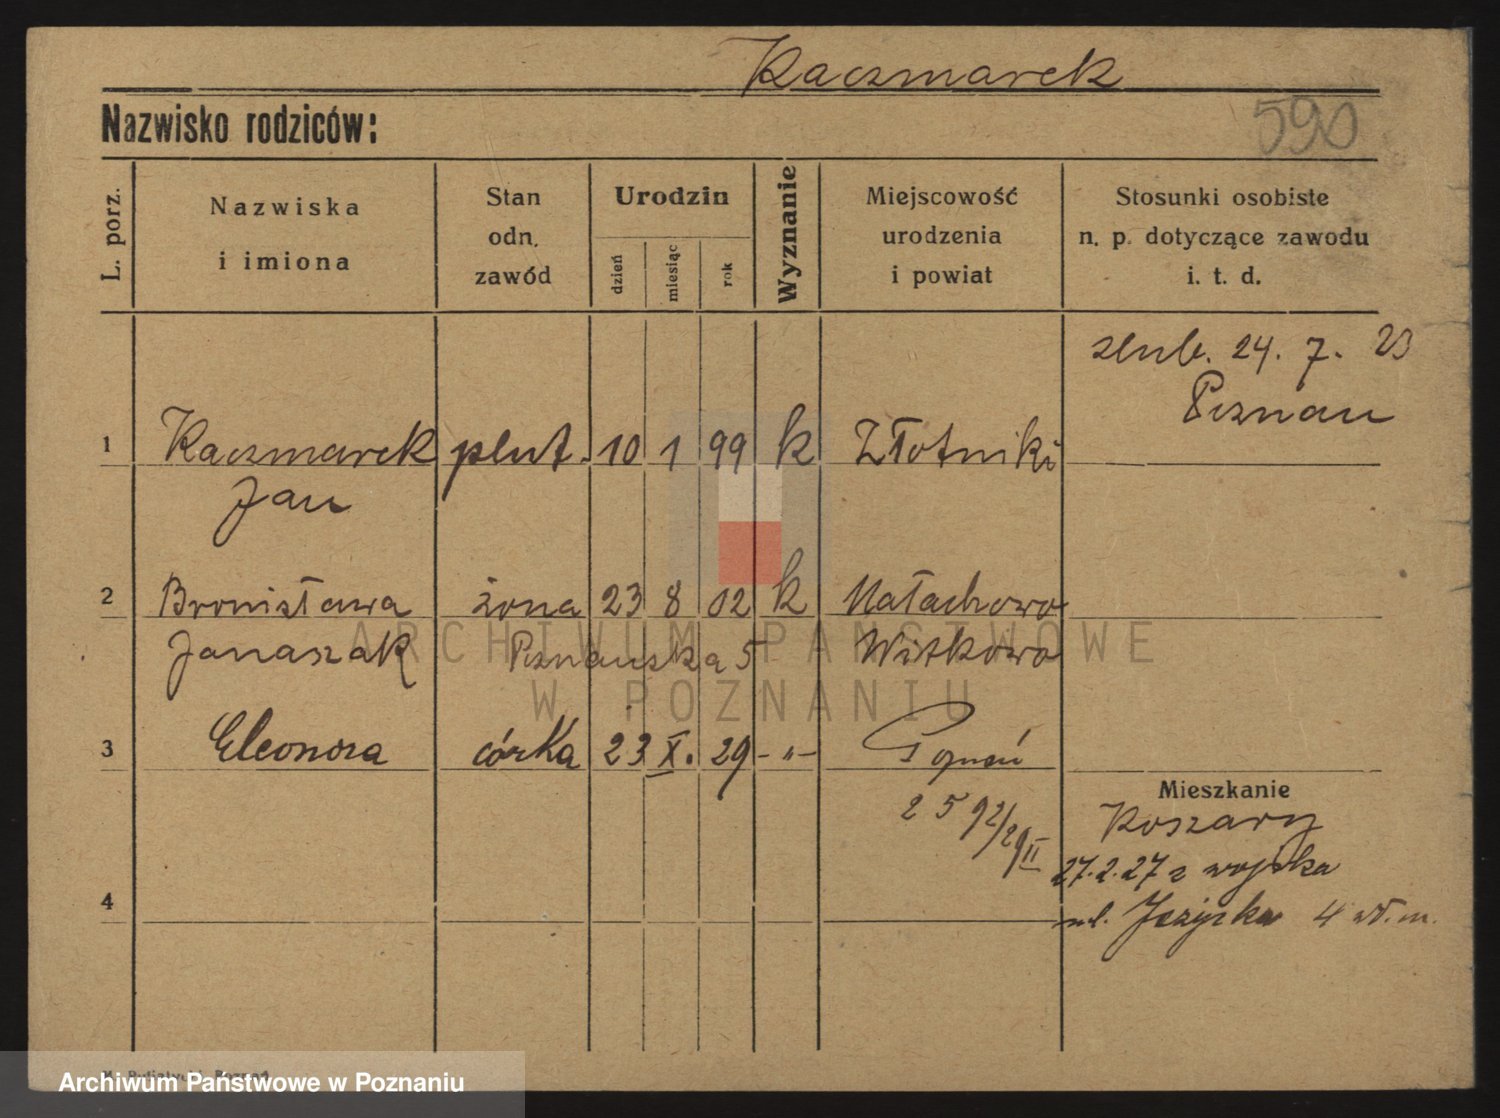 Kaczmarek
Nazwisko rodziców:
590
L. porz.
Nazwiska
i imiona
Stan
odn.
zawód
Urodzin
dzień
miesiąc
rok
Wyznanie
Miejscowość
urodzenia
i powiat
Stosunki osobiste
n. p. dotyczące zawodu
i. t. d.
ślub. 24. 7. 23
Poznan
1 Kaczmarek plut. 10 1 99 k Złotniki
Jan
2 Bronisława żona 23 8 02 k Małachowo
Janaszak Poznańska 5 Witkowo
3 Eleonora córka 23 X. 29 -"- Poznań
2592/29 II
Mieszkanie
Koszary
27.2.27 z wojska
4 ul. 4 m.
ARCHIWUM PAŃSTWOWE
W POZNANIU
Archiwum Państwowe w Poznaniu